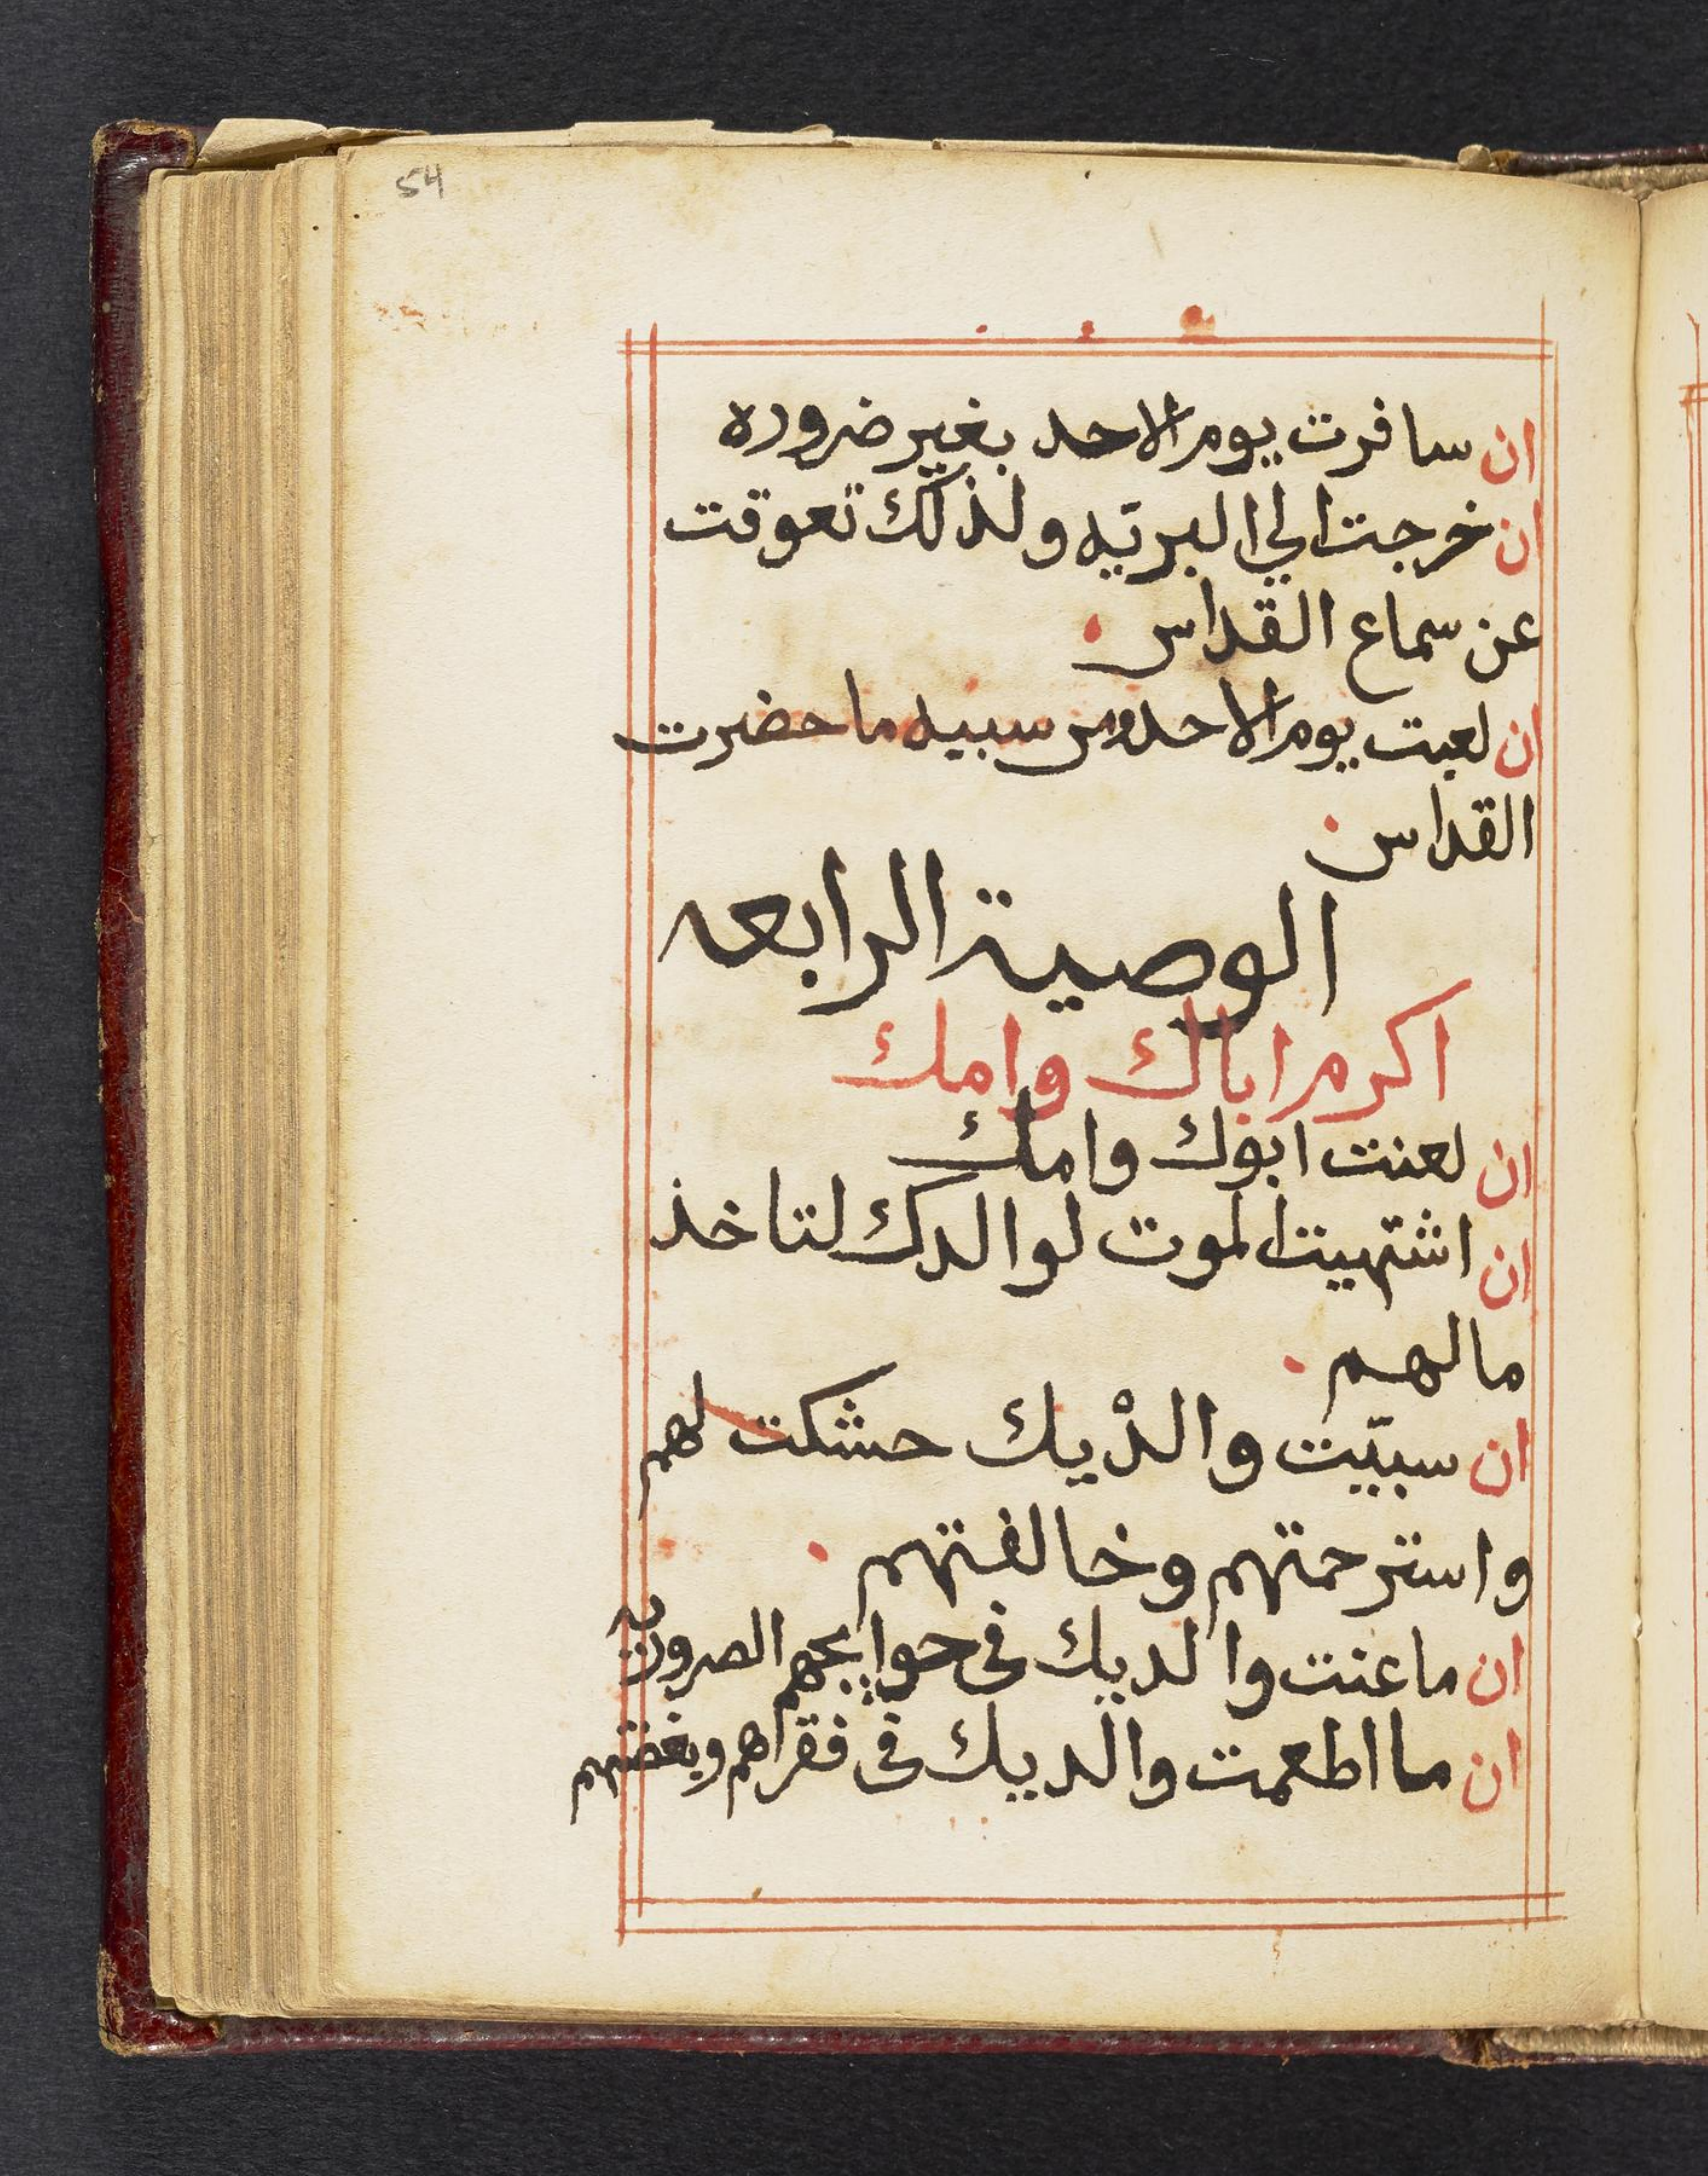 54
ان سافرت يوم الاحد بغير ضروره
ان خرجت الي البريّه ولذلك تعوقت
عن سماع القداس
ان لعبت يوم الاحد ومن سبيه ما حضرت
القداس
الوصية الرابعه
اكرم اباك وامك
ان لعنت ابوك وامك
ان اشتهيت الموت لوالدك لتاخذ
مالهم
ان سبيّت والدْيك حشكت لهم
واسترحمتهم وخالفتهم
ان ما عنت والديك في حوايجهم
ان ما اطعمت والديك في فقراهم وبغضتهم